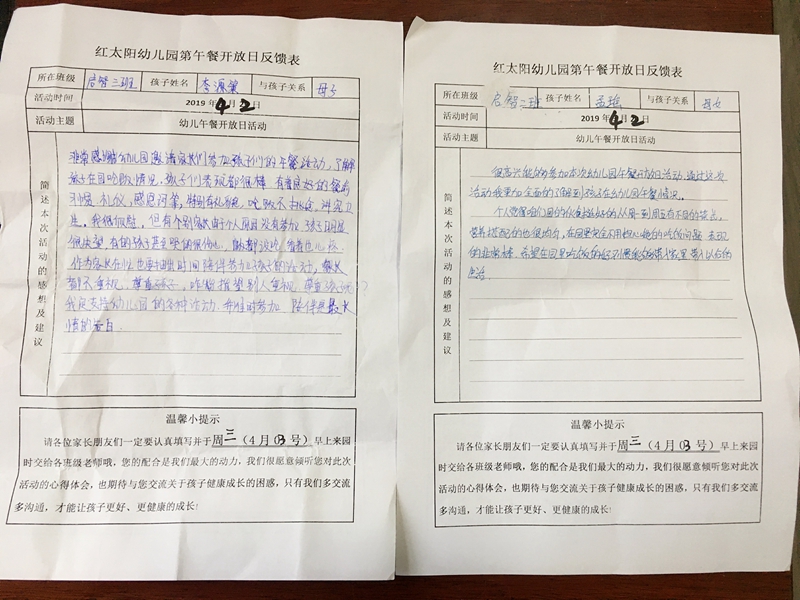 红太阳幼儿园第午餐开放日反馈表
所在班级 启智二班 孩子姓名 李源 与孩子关系 母子
活动时间 2019年4月2日
活动主题 幼儿午餐开放日活动
简述本次活动的感想及建议
非常感谢幼儿园邀请家长们参加孩子们的午餐活动，了解
孩子在园吃饭情况，孩子们表现都很棒 有着良好的餐前
礼仪，感恩词等，特别有礼貌，吃饭不
生。我很欣慰，但有个别家长由于个人原因没有参加，孩子
很失望 有的孩子甚至
作为家长 也要抽出时间陪伴参加孩子的活动，家长
都不重视， 咋能指望别人重视
我是支持幼儿园的各种活动，并准时参加 陪伴是最长
情的告白
温馨小提示
请各位家长朋友们一定要认真填写并于周三（4月03号）早上来园
时交给各班级老师哦，您的配合是我们最大的动力，我们很愿意倾听您对此次
活动的心得体会，也期待与您交流关于孩子健康成长的困惑，只有我们多交流
多沟通，才能让孩子更好、更健康的成长!
红太阳幼儿园第午餐开放日反馈表
所在班级 启智二班 孩子姓名 孟 与孩子关系 母女
活动时间 2019年4月2日
活动主题 幼儿午餐开放日活动
简述本次活动的感想及建议
很高兴能参加本次幼儿园午餐开放日活动，通过这次
活动我更加全面的了解到孩子在幼儿园午餐情况。
个人觉得咱们园的伙食挺好的从周一到周五有不同的菜点，
营养搭配的也很均匀，在园里完全不用担心她的吃饭问题 表现
的非常棒，希望在园里吃饭的好习惯能够带回家里 带入以后的
生活
温馨小提示
请各位家长朋友们一定要认真填写并于周三（4月03号）早上来园
时交给各班级老师哦，您的配合是我们最大的动力，我们很愿意倾听您对此次
活动的心得体会，也期待与您交流关于孩子健康成长的困惑，只有我们多交流
多沟通，才能让孩子更好、更健康的成长!